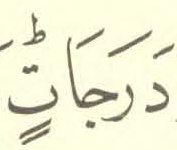 دَرَجَاتٍؕ